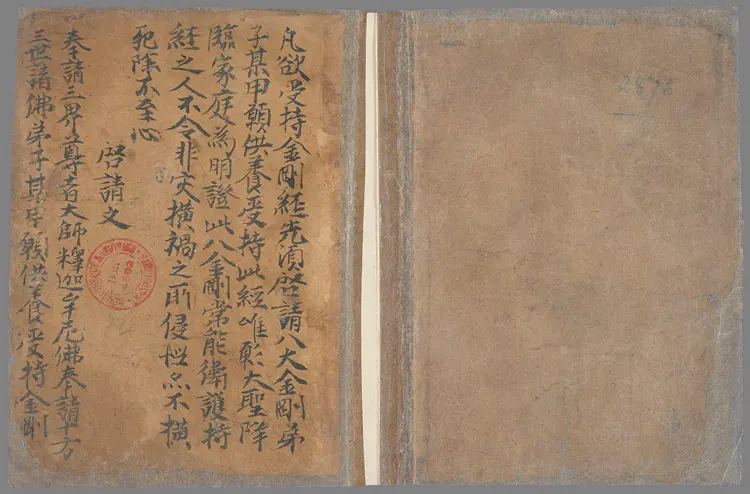 凡欲受持金剛經先須啓請八大金剛弟
子某甲願供養受持此經唯彰大聖降
臨家庭為明證此八金剛常能衛護持
經之人不令非灾橫禍之所侵惱亦不橫
死除不至心
啓請文
奉請三界尊者大師釋迦牟尼佛奉請十方
三世諸佛弟子某甲願供養受持金剛
2876